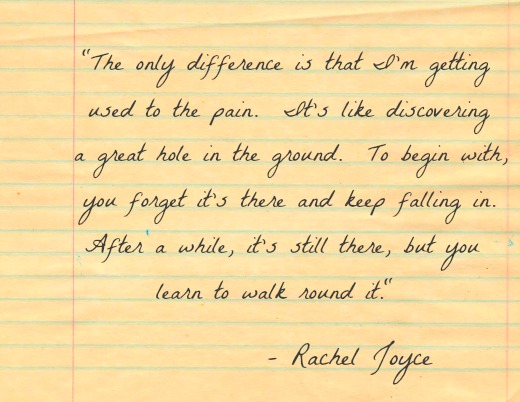 "The only difference is that I'm getting
used to the pain. It's like discovering
a great hole in the ground. To begin with,
you forget it's there and keep falling in.
After a while, it's still there, but you
learn to walk round it."
- Rachel Joyce